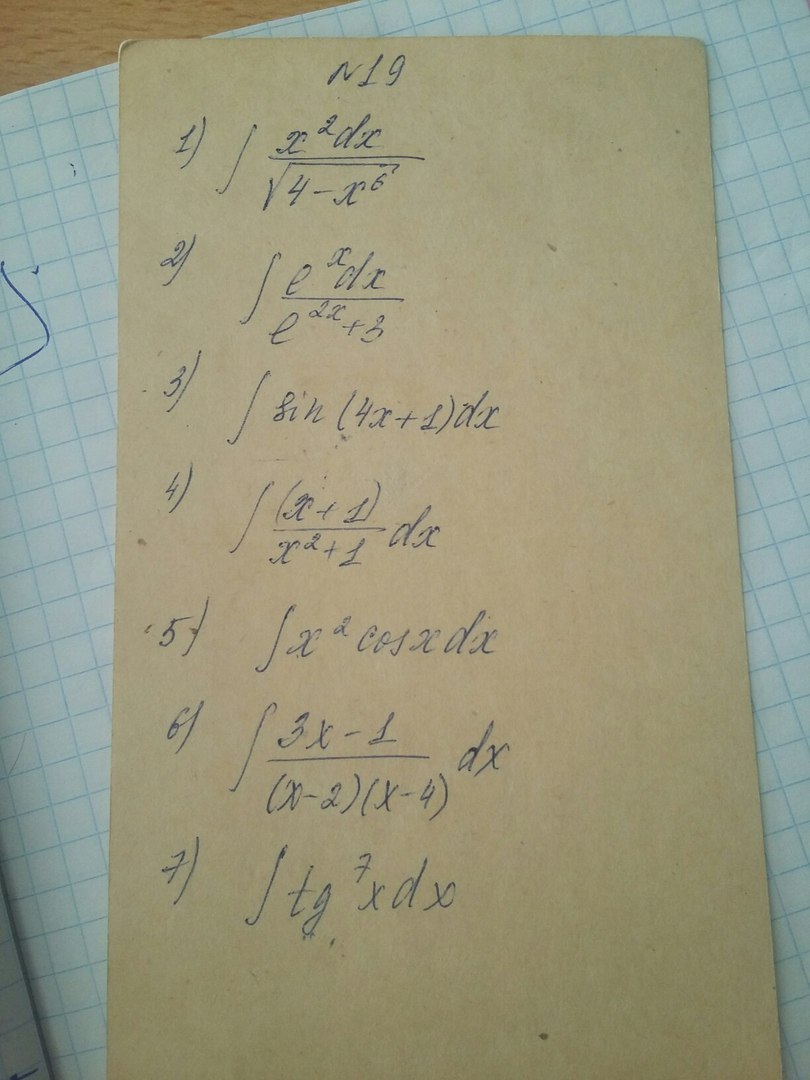 №19
1) ∫ x²dx / √(4-x⁶)
2) ∫ eˣdx / e²ˣ+3
3) ∫ sin(4x+1)dx
4) ∫ (x+1) / x²+1 dx
5) ∫x²cosxdx
6) ∫ 3x-1 / (x-2)(x-4) dx
7) ∫tg⁷xdx